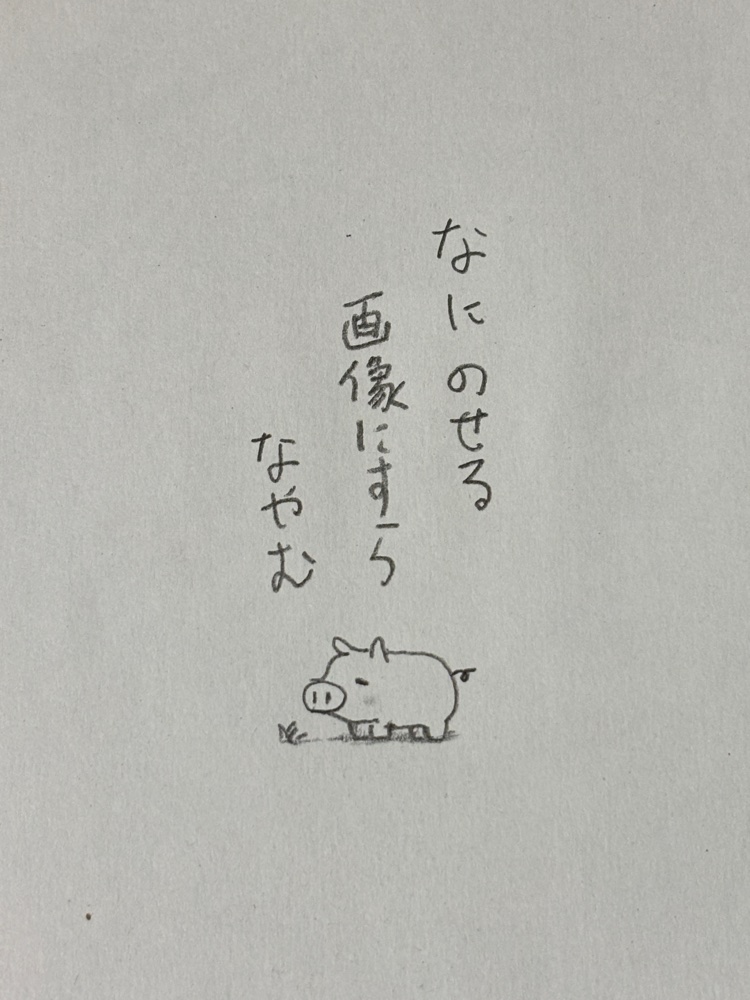 なにのせる
画像にすら
なやむ